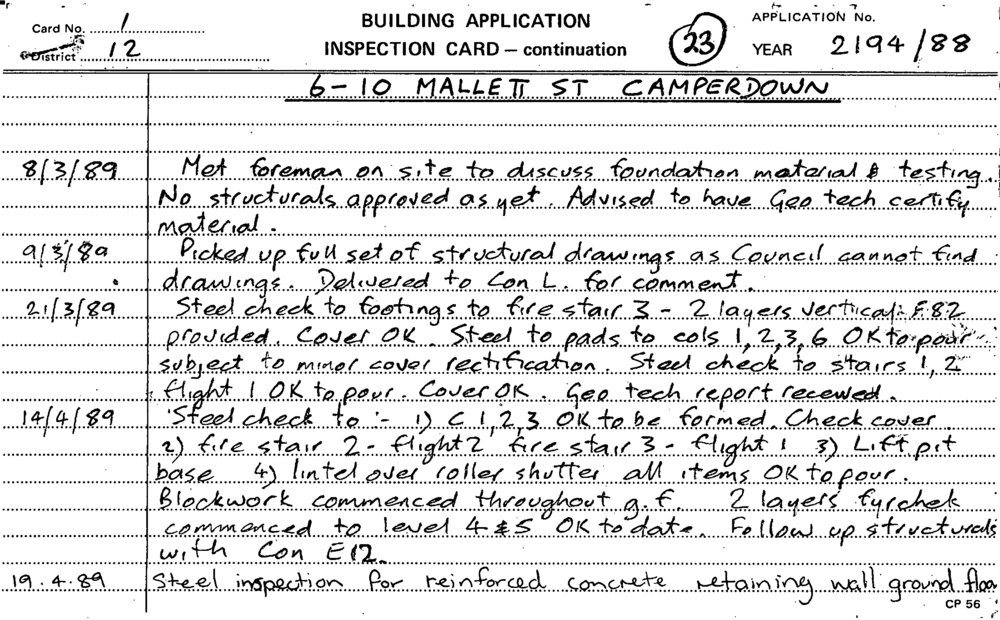 Card No. 1
District 12
BUILDING APPLICATION
INSPECTION CARD – continuation
23
APPLICATION No.
YEAR 2194/88
6-10 MALLETT ST CAMPERDOWN
8/3/89 Met foreman on site to discuss foundation material & testing.
No structurals approved as yet. Advised to have Geo tech certify
material.
9/3/89 Picked up full set of structural drawings as Council cannot find
drawings. Delivered to Con L. for comment.
21/3/89 Steel check to footings to fire stair 3 - 2 layers vertical F82
provided. Cover OK. Steel to pads to cols 1,2,3,6 OK to pour
subject to minor cover rectification. Steel check to stairs 1, 2
flight 1 OK to pour. Cover OK. Geo tech report received.
14/4/89 Steel check to :- 1) C 1,2,3 OK to be formed. Check cover
2) fire stair 2 - flight 2 fire stair 3 - flight 1 3) Lift pit
base 4) lintel over roller shutter all items OK to pour.
Blockwork commenced throughout g.f 2 layers fyrchek
commenced to level 4 & 5 OK to date. Follow up structurals
with Con E12.
19.4.89 Steel inspection for reinforced concrete retaining wall ground floor
CP 56